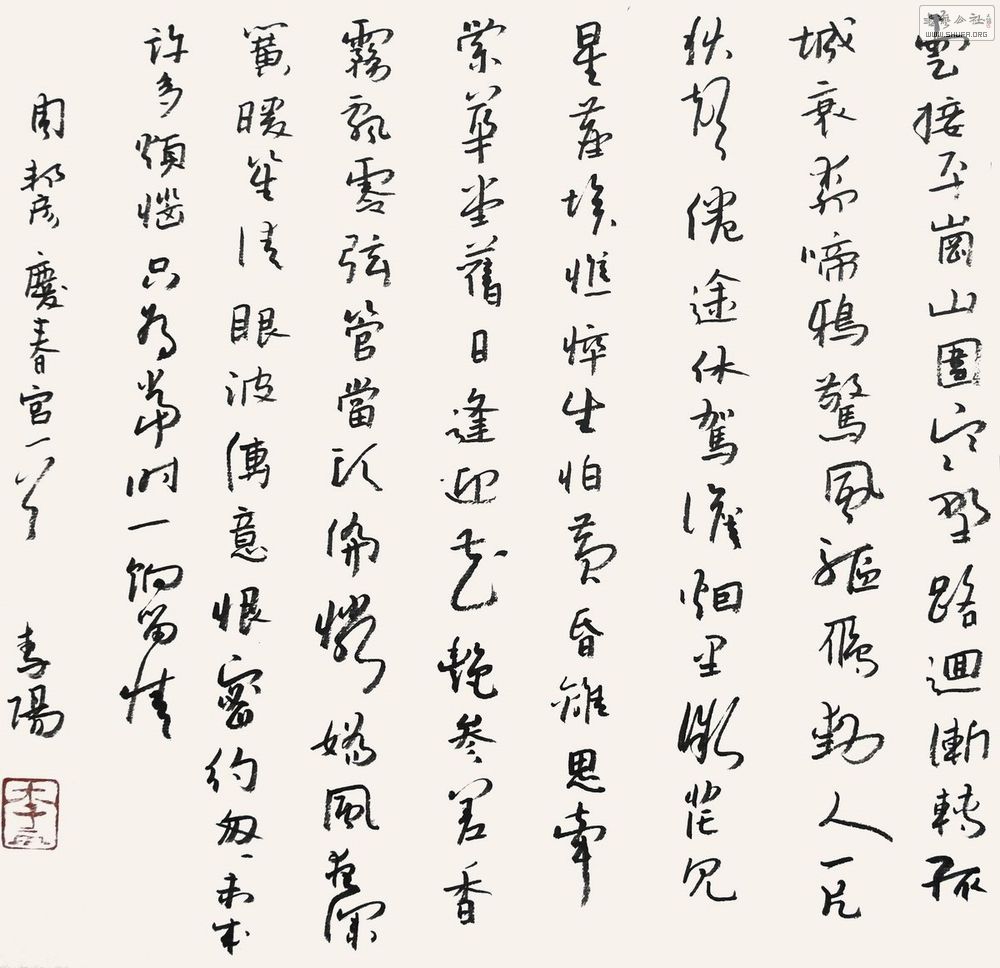 雲接平崗山圍寒野路迴漸轉孤
城衰柳啼鴉驚風驅雁動人一片
秋聲倦途休駕澹烟里微茫見
星塵埃憔悴生怕黄昏離思牽
縈華堂舊日逢迎花艷參差香
霧飄零弦管當頭偏憐嬌鳳夜深
簧暖笙清眼波傳意恨密約匆匆未成
許多煩惱只為當時一餉留情
周邦彦慶春宮一首 李陽
书法公社
WWW.SHUFA.ORG